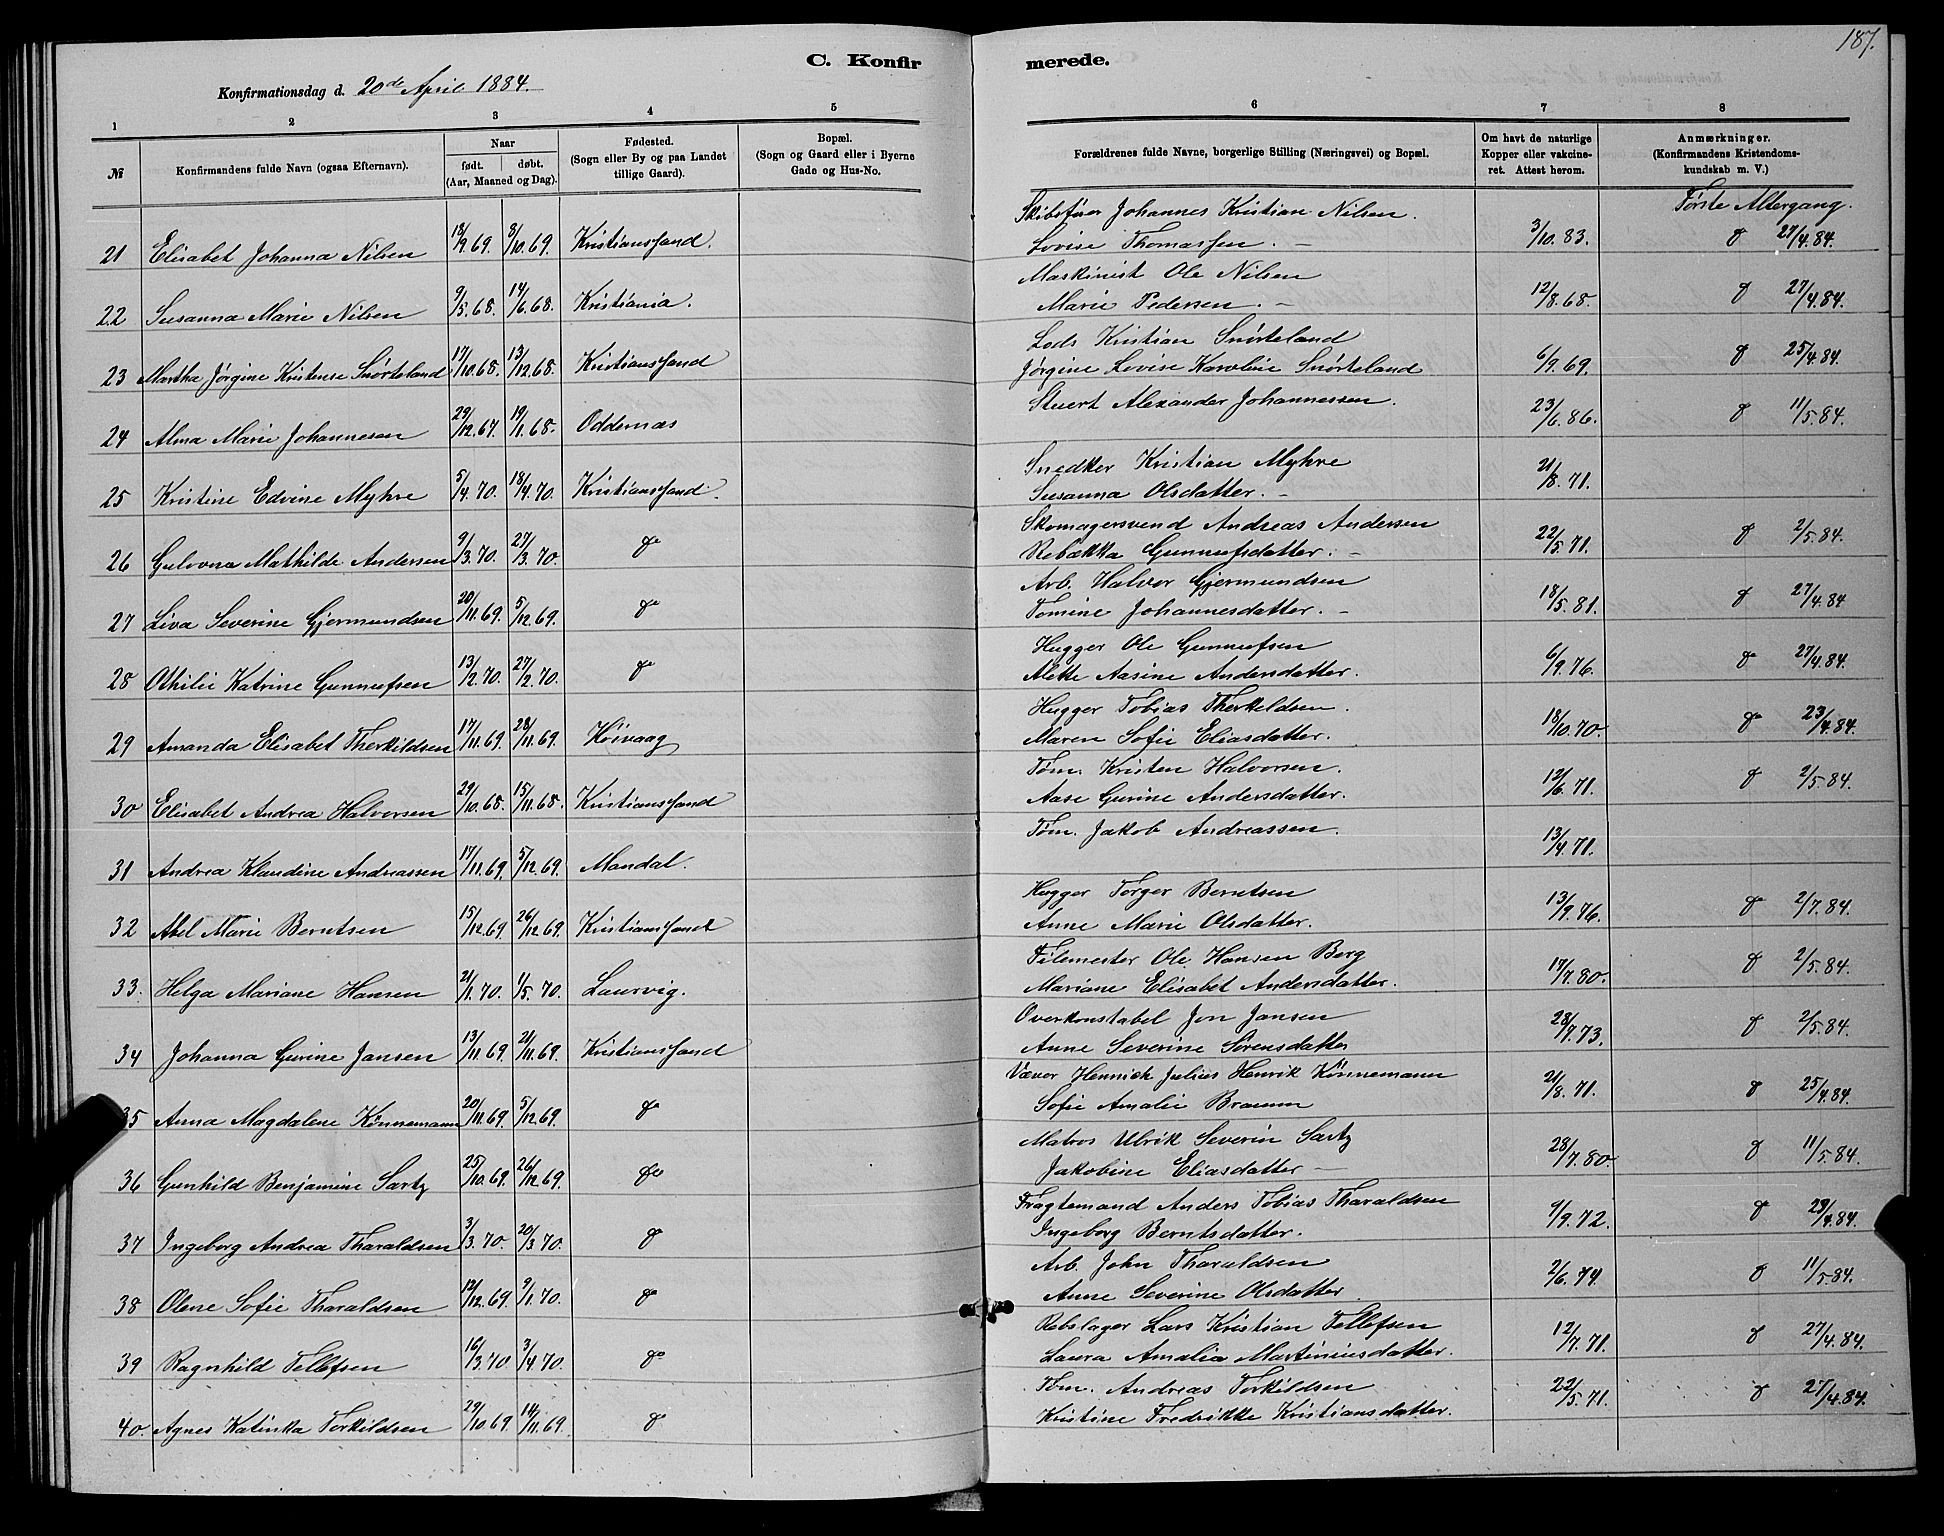 187.
C. Konfirmerede.
Konfirmationsdag d. 20de April 1884.
1 2 3 4 5 6 7 8
№ Konfirmandens fulde Navn (ogsaa Efternavn). Naar født. døbt. (Aar, Maaned og Dag). Fødested. (Sogn eller By og paa Landet tillige Gaard). Bopæl. (Sogn og Gaard eller i Byerne Gade og Hus-No. Forældrenes fulde Navne, borgerlige Stilling (Næringsvei) og Bopæl. Om havt de naturlige Kopper eller vakcineret. Attest herom. Anmærkninger. (Konfirmandens Kristendomskundskab m. V.)
Første Altergang.
21 Elisabet Johanna Nilsen 18/9.69. 8/10.69. Kristianssand. Skibsfører Johannes Kristian Nilsen. 3/10.83. do 27/4.84.
Lovise Thomassen. –
22 Susanna Marie Nilsen 9/5.68. 14/6.68. Kristiania. Maskinist Ole Nilsen 12/8.68. do 27/4.84.
Marie Pedersen. –
23 Martha Jørgine Kristense Snørteland 17/10.68. 13/12.68. Kristianssand Lods Kristian Snørteland 6/9.69. do 25/4.84.
Jørgine Lovise Karoline Snørteland
24 Alma Marie Johannesen 29/12.67. 19/1.68. Oddernæs Stuert Alexander Johannessen. 23/6.86. do 11/5.84.
25 Kristine Edvine Myhre 5/4.70. 18/4.70. Kristianssand. Snedker Kristian Myhre 21/8.71.
Susanna Olsdatter. –
26 Gulovna Mathilde Andersen 9/3.70. 27/3.70. do Skomagersvend Andreas Andersen 22/5.71. do 2/5.84.
Rebækka Gunnufsdatter. –
27 Liva Severine Gjermundsen 20/11.69. 5/12.69. do Arb. Halvor Gjermundsen 18/5.81. do 27/4.84
Tomine Johannesdatter. –
28 Othilie Katrine Gunnufsen 13/2.70. 27/2.70. do Hugger Ole Gunnufsen 6/9.76. do 27/4.84.
Alette Aasine Andersdatter.
29 Amanda Elisabet Therkildsen 17/11.69. 28/11.69. Høivaag Hugger Tobias Therkeldsen. 18/10.70. do 23/4.84.
Maren Sofie Eliasdatter.
30 Elisabet Andrea Halvorsen 29/10.68. 15/11.68. Kristianssand Tøm. Kristen Halvorsen. 12/6.71. do 2/5.84.
Aase Gurine Andersdatter.
31 Andrea Klaudine Andreassen 17/11.69. 5/12.69. Mandal. Tøm. Jakob Andreassen. 13/4.71.
32 Abel Marie Berntsen 15/12.69. 26/12.69. Kristianssand Hugger Torger Berntsen 13/9.76. do 2/7.84.
Anne Marie Olsdatter.
33. Helga Mariane Hansen 21/1.70. 1/5.70. Laurvig. Filemester Ole Hansen Berg 17/7.80. do 2/5.84.
Mariane Elisabet Andersdatter.
34 Johanna Gurine Jansen 13/11.69. 21/11.69. Kristianssand Overkonstabel Jon Jansen 28/7.73. do 2/5.84.
Anne Severine Sørensdatter
35 Anna Magdalene Kønnemann 20/11.69. 5/12.69. do Væver Hennich Julius Henrik Kønnemann 21/8.71. do 25/4.84.
Sofie Amalie Braunn
36 Gunhild Benjamine Sartz 25/10.69. 26/12.69. do Matros Ulrik Severin Sartz 28/7.80. do 11/5.84.
Jakobine Eliasdatter –
37 Ingeborg Andrea Tharaldsen 3/3.70. 20/3.70. do Fragtemand Anders Tobias Tharaldsen 9/9.72. do 23/4.84.
Ingeborg Berntsdatter.
38 Olene Sofie Tharaldsen 12/12.69. 9/1.70. do Arb. John Tharaldsen 2/6.74. do 11/5.84.
Anne Severine Olsdatter
39 Ragnhild Tellefsen 16/3.70. 3/4.70. do Rebslager Lars Kristian Tellefsen 12/7.71. do 27/4.84.
Laura Amalia Martiniusdatter.
40. Agnes Katinka Torkildsen 29/10.69. 14/11.69. do Tøm. Andreas Torkildsen 22/5.71. do 27/4.84.
Kristine Fredrikke Kristiansdatter.